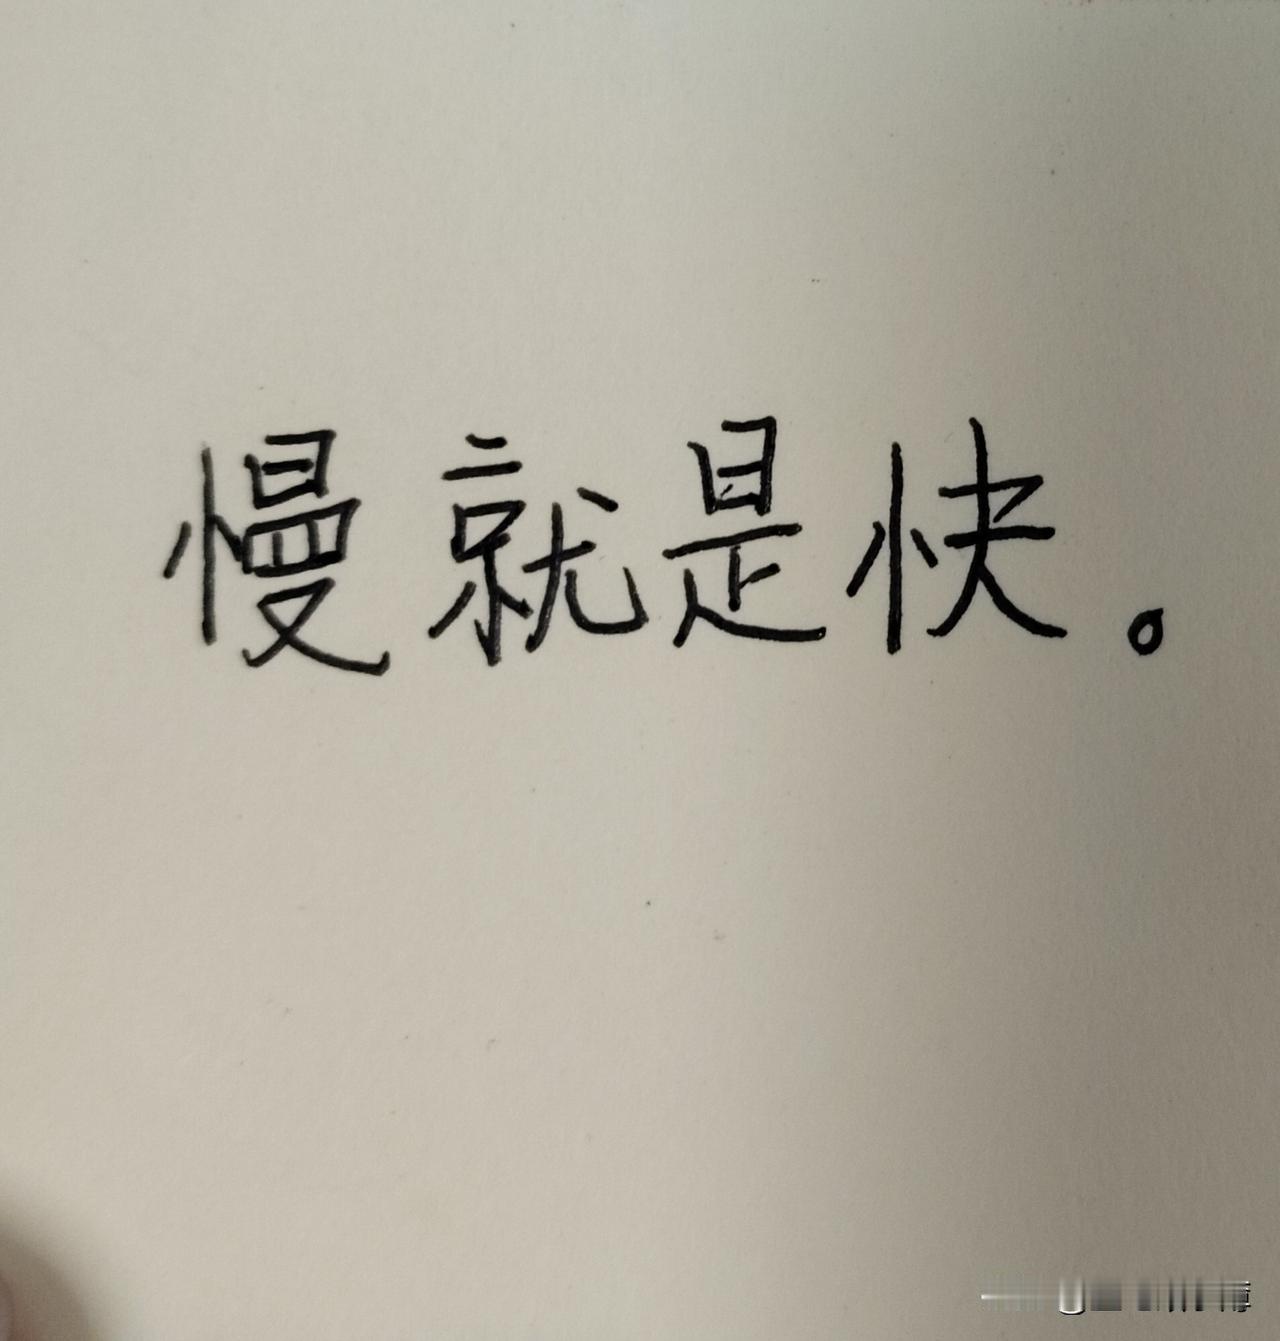 慢就是快。